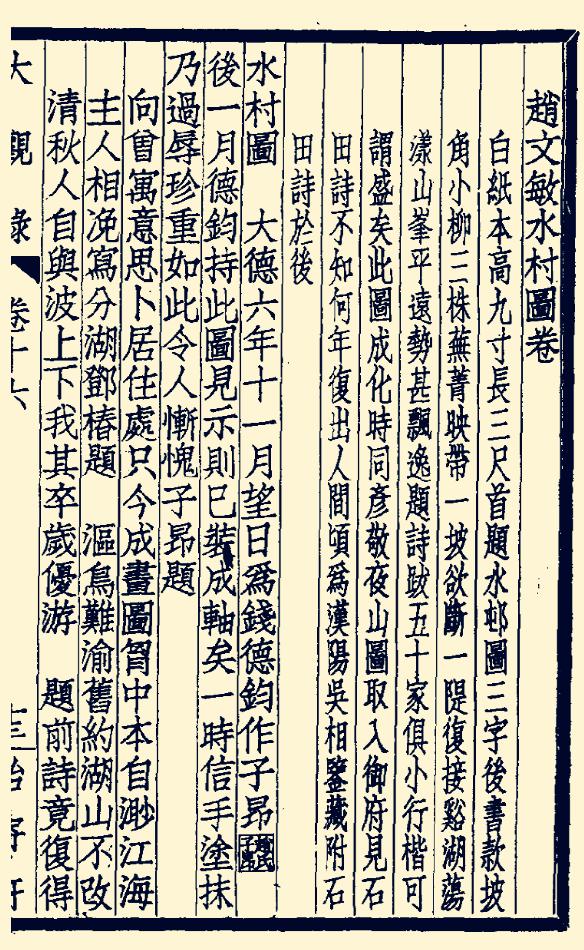 趙文敏水村圖卷
白紙本高九寸長三尺首題水邨圖三字後書款坡
角小柳三株蕪菁映帶一坡欲斷一隄復接谿湖蕩
漾山峯平遠勢甚飄逸題詩跋五十家俱小行楷可
謂盛矣此圖成化時同彥敬夜山圖取入御府見石
田詩不知何年復出人間頃爲漢陽吳相鑒藏附石
田詩於後
水村圖　大德六年十一月望日爲錢德鈞作子昂
後一月德鈞持此圖見示則已裝成軸矣一時信手塗抹
乃過辱珍重如此令人慚愧子昂題
向曾寓意思卜居住處只今成畫圖胷中本自渺江海
主人相俛寫分湖鄧椿題　漚鳥難渝舊約湖山不改
清秋人自與波上下我其卒歲優游　題前詩竟復得
大觀錄　卷十六